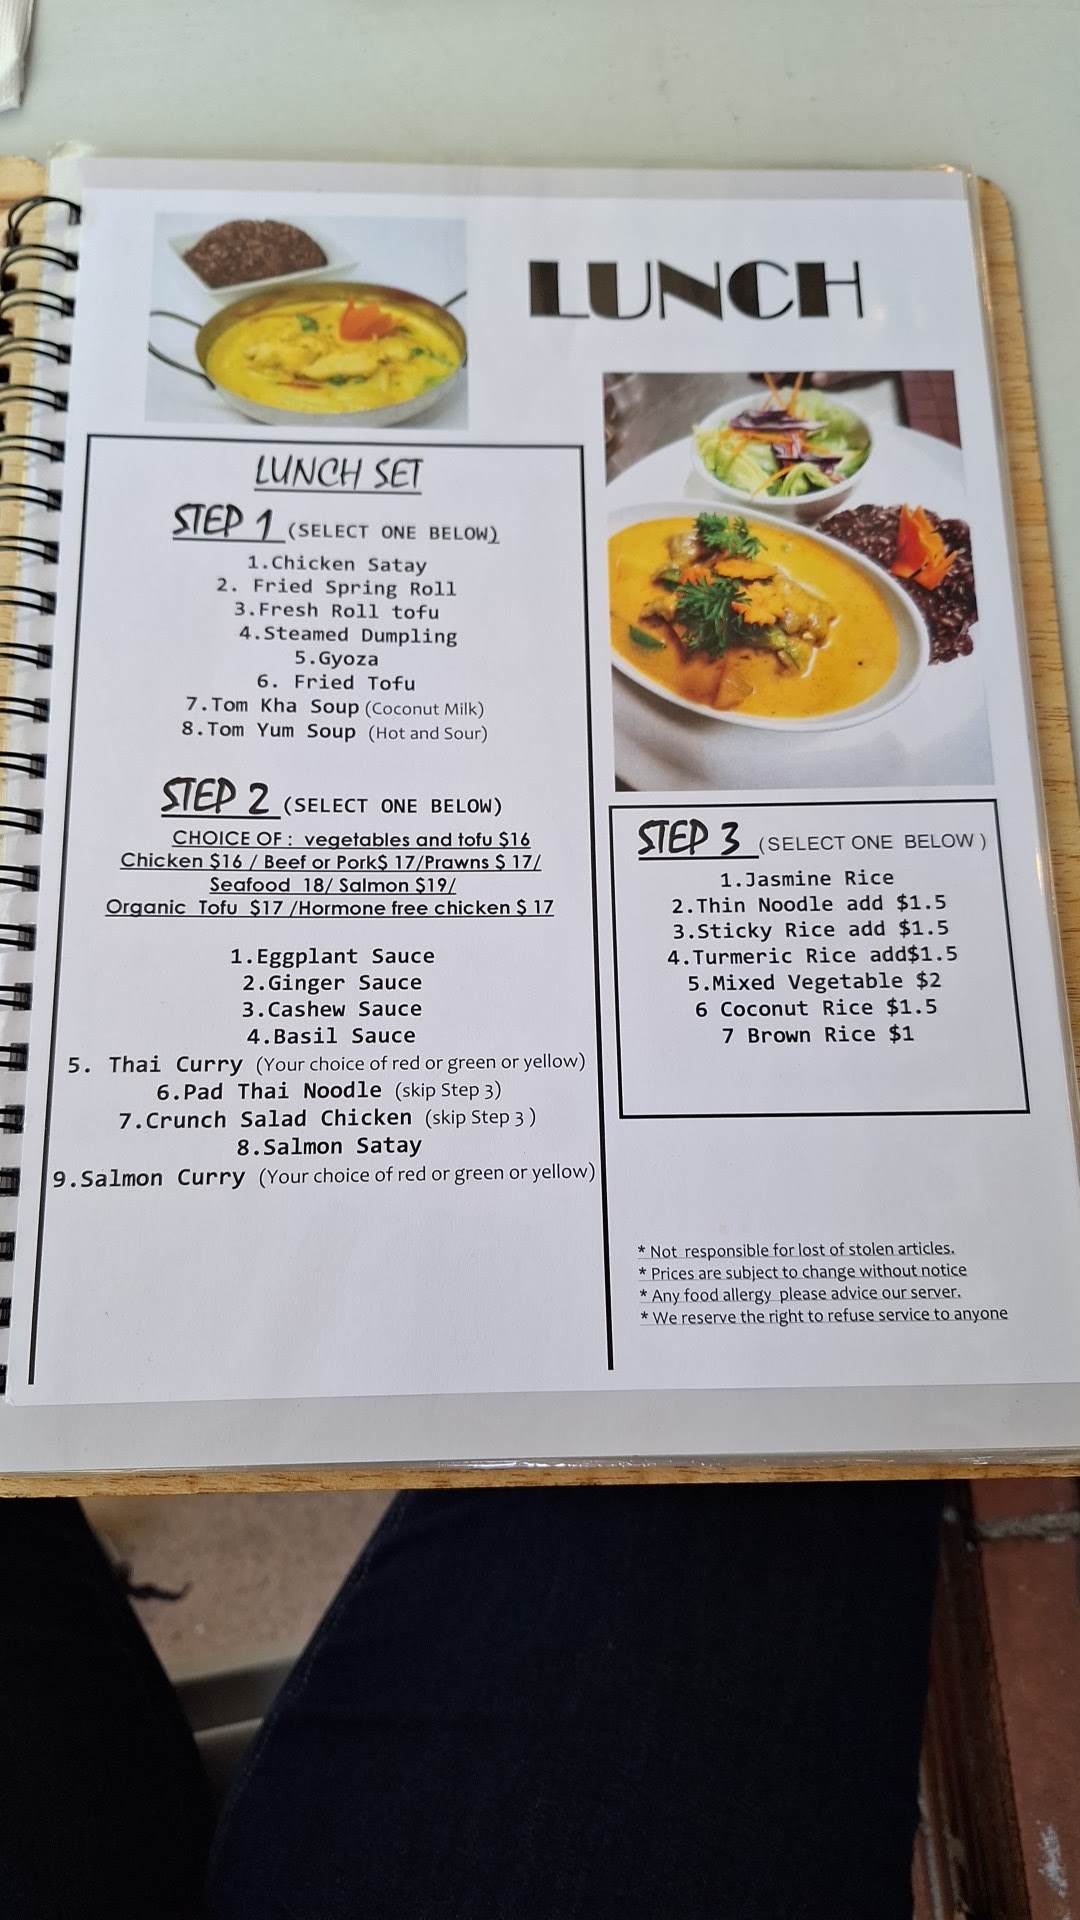 LUNCH
LUNCH SET
STEP 1 (SELECT ONE BELOW)
1.Chicken Satay
2. Fried Spring Roll
3.Fresh Roll tofu
4.Steamed Dumpling
5.Gyoza
6. Fried Tofu
7.Tom Kha Soup (Coconut Milk)
8.Tom Yum Soup (Hot and Sour)
STEP 2 (SELECT ONE BELOW)
CHOICE OF : vegetables and tofu $16
Chicken $16 / Beef or Pork$ 17/Prawns $ 17/
Seafood 18/ Salmon $19/
Organic Tofu $17 /Hormone free chicken $ 17
1.Eggplant Sauce
2.Ginger Sauce
3.Cashew Sauce
4.Basil Sauce
5. Thai Curry (Your choice of red or green or yellow)
6.Pad Thai Noodle (skip Step 3)
7.Crunch Salad Chicken (skip Step 3 )
8.Salmon Satay
9.Salmon Curry (Your choice of red or green or yellow)
STEP 3 (SELECT ONE BELOW )
1.Jasmine Rice
2.Thin Noodle add $1.5
3.Sticky Rice add $1.5
4.Turmeric Rice add$1.5
5.Mixed Vegetable $2
6 Coconut Rice $1.5
7 Brown Rice $1
* Not responsible for lost of stolen articles.
* Prices are subject to change without notice
* Any food allergy please advice our server.
* We reserve the right to refuse service to anyone